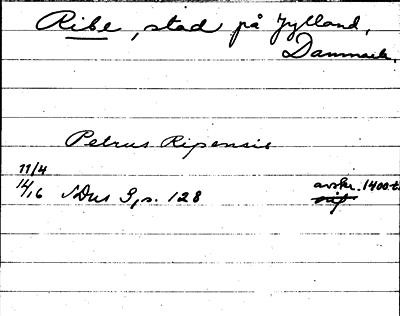 Ribe, stad på Jylland,
Danmark.
Petrus Ripensis
11/4
1416 SDns 3, s. 128 avskr. 1400-t.